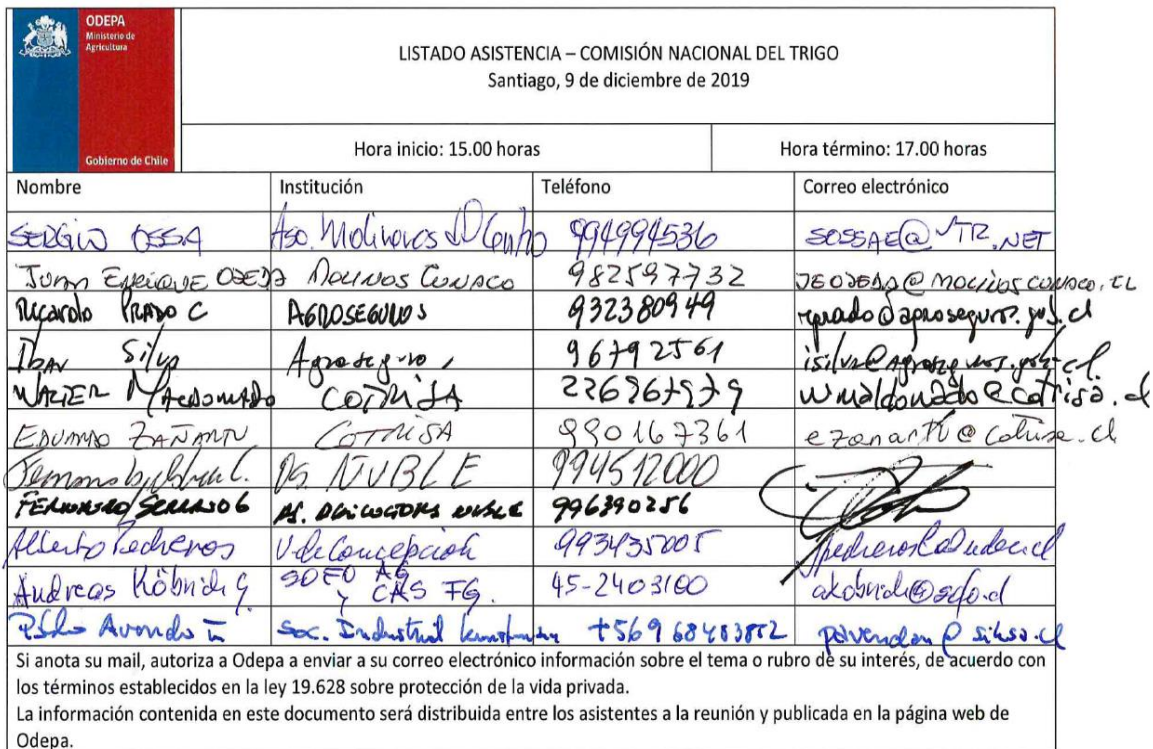 ODEPA
Ministerio de
Agricultura
Gobierno de Chile
LISTADO ASISTENCIA – COMISIÓN NACIONAL DEL TRIGO
Santiago, 9 de diciembre de 2019
Hora inicio: 15.00 horas Hora término: 17.00 horas
Nombre Institución Teléfono Correo electrónico
SERGIO OSSA Aso. Molineros del Centro 994994536 SOSSAE@VTR.NET
JUAN ENRIQUE OJEDA MOLINOS CUNACO 982597732 JEOJEDA@MOLINOSCUNACO.CL
Ricardo PRADO C AGROSEGUROS 932380949 rprado@agroseguros.gob.cl
Silva Agroseguro 96792561 isilva@agroseguros.gob.cl
WALTER MALDONADO COTRISA 226967979 wmaldonado@cotrisa.cl
EDUARDO ZAÑARTU COTRISA 990167361 ezanartu@cotrisa.cl
ÑUBLE 994512000
FERNANDO SERRANO G AS. AGRICULTORES ÑUBLE 996390256
Alberto Pedreros U de Concepción 993435005
Andreas Köbrich G SOFO AG 45-2403100 akobrich@sofo.cl
y CAS FG.
Avendaño Soc. Industrial Kunstmann +569 68483852
Si anota su mail, autoriza a Odepa a enviar a su correo electrónico información sobre el tema o rubro de su interés, de acuerdo con
los términos establecidos en la ley 19.628 sobre protección de la vida privada.
La información contenida en este documento será distribuida entre los asistentes a la reunión y publicada en la página web de
Odepa.